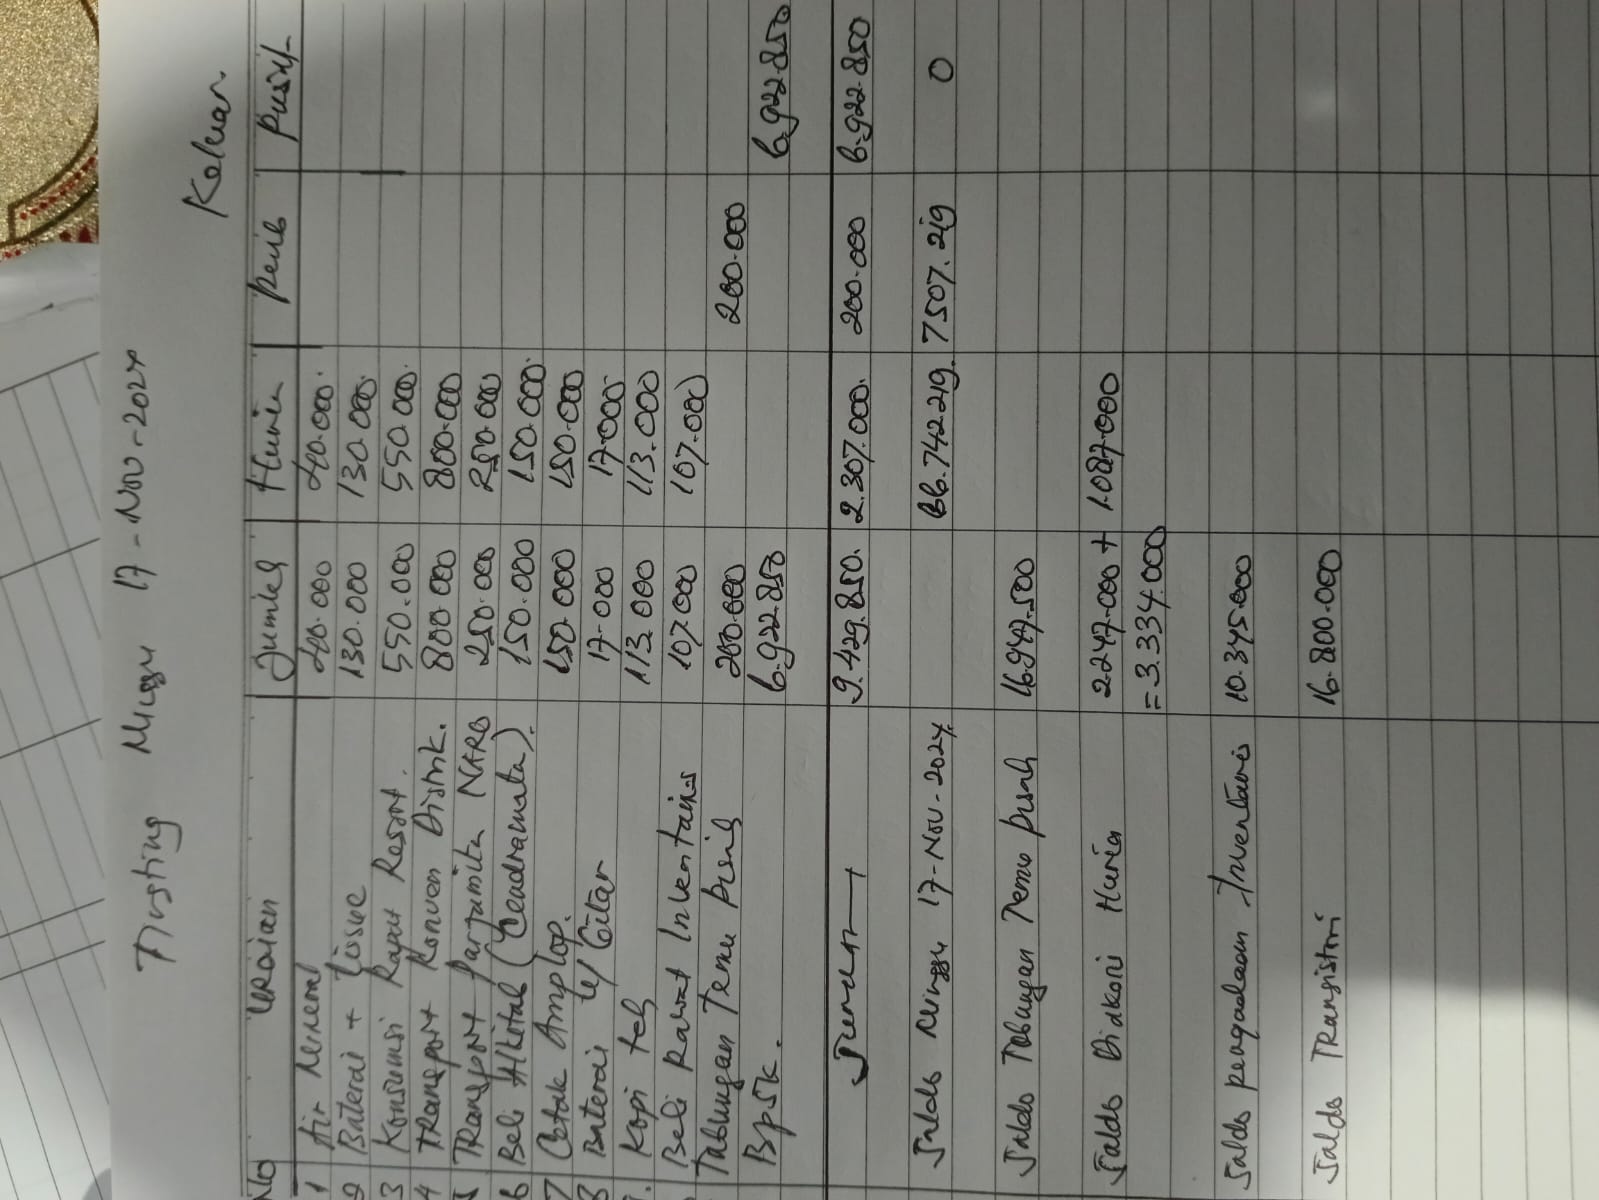 Tingting Minggu 17-Nov-2024
Keluar
No Uraian Jumlah Huria Perib Pusat
1 Air Mineral 40.000 40.000
2 Baterai + tissue 130.000 130.000
3 Konsumsi Rapat Resort. 550.000 550.000
4 Transport Konven Distrik. 800.000 800.000
5 Transport Parjumita NARO 250.000 250.000
6 Beli Alkitab (Cendramata). 150.000 150.000
7 Cetak Amplop. 150.000 150.000
8 Baterai u/ Gitar 17.000 17.000
9. Kopi teh 113.000 113.000
Beli Rawat Inventaris 107.000 107.000
Tabungan Temu Pisah 200.000 200.000
BpSk. 6.922.850 6.922.850
Jumlah 9.429.850. 2.307.000. 200.000 6.922.850
Saldo Minggu 17-Nov-2024. 66.742.219. 7507.219 0
Saldo Tabungan Temu pisah 16.947.500
Saldo Diakoni Huria 2.247.000 + 1.087.000
= 3.334.000
Saldo pengadaan Inventaris 10.345.000
Saldo Transistori 16.800.000